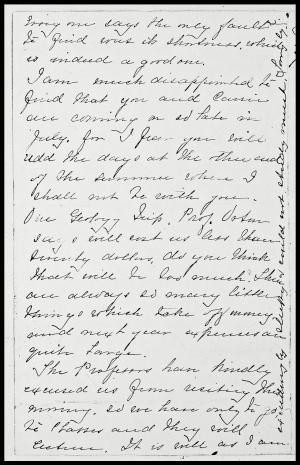 Every one says the only fault
to find was its shortness, which
is indeed a good one.
I am much disappointed to
find that you and Carrie
are coming on so late in
July, for I fear you will
add the days at the other end
of the summer when I
shall not be with you.
Our Geology Trip, Prof. Orton
says will cost us less than
twenty dollars, do you think
that will be too much. There
are always so many little
things which take off money
and next year expenses are
quite large.
The Professors have kindly
excused us from reciting this
morning, so we have only to go
to Classes and they will
lecture. It is well as I am